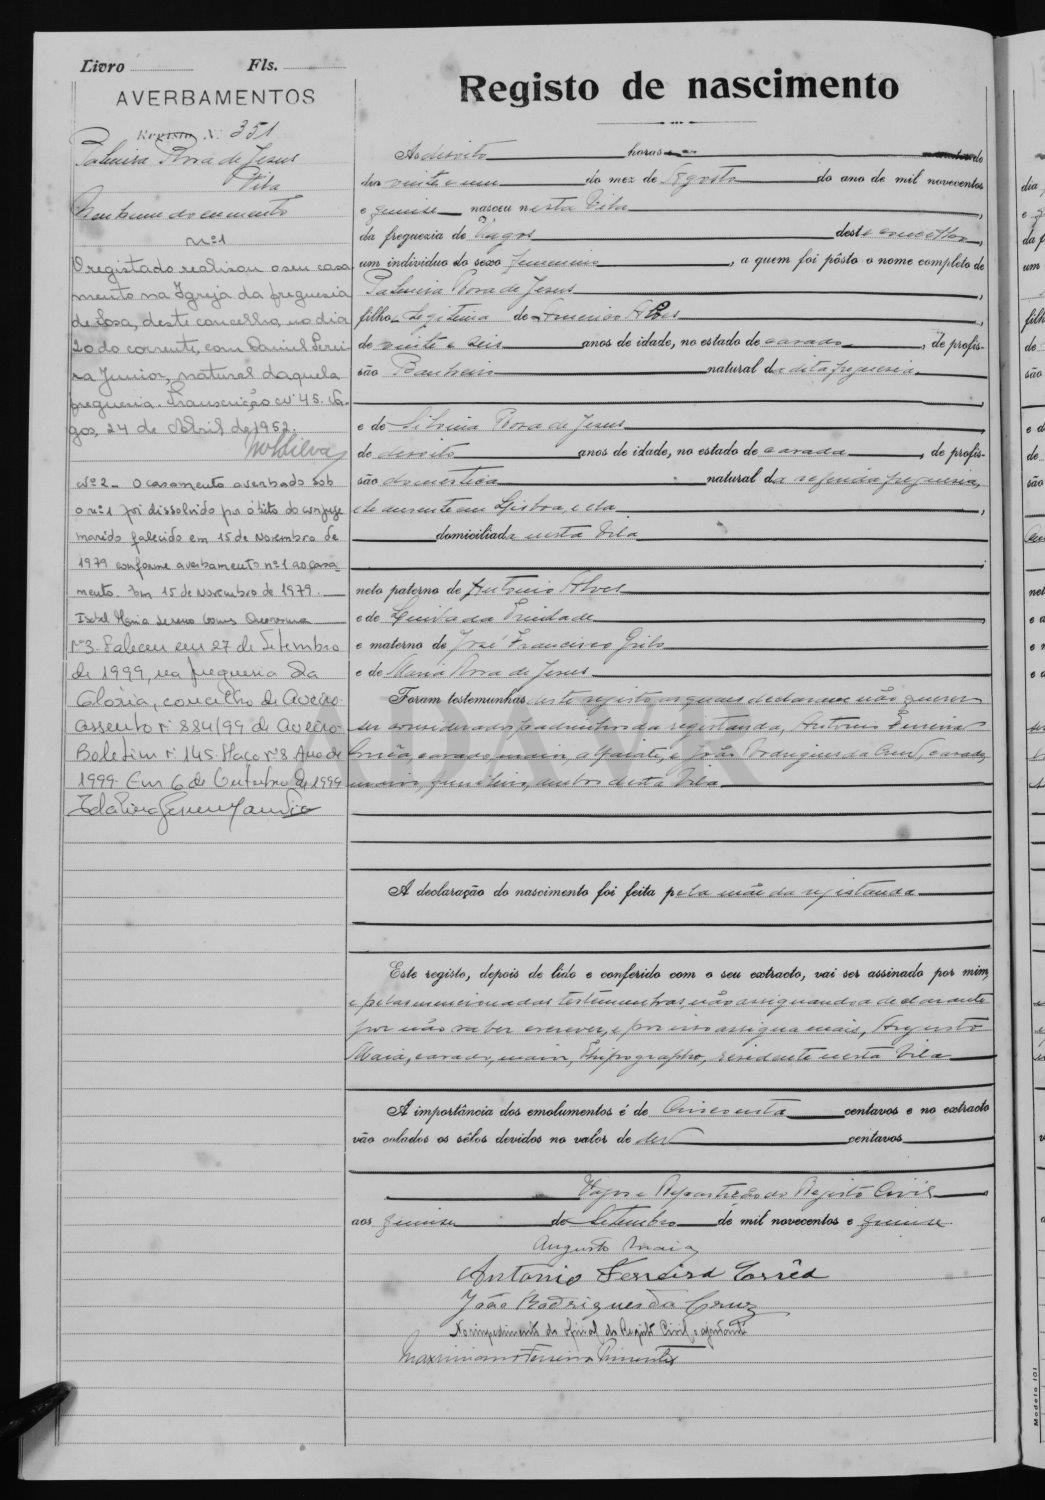 Livro Fls.
AVERBAMENTOS
Registo N. 351
Palmira Rosa de Jesus
Vila
Nenhum documento
nº 1
O registado realizou o seu casa
mento na Igreja da freguesia
de Sosa, deste concelho, no dia
20 do corrente, com Daniel Perei
ra Junior, natural daquela
freguesia. Transcrição nº 45. Va-
gos, 24 de Abril de 1952.
Nº 2 - O casamento averbado sob
o nº 1 foi dissolvido por óbito do conjuge
marido falecido em 15 de Novembro de
1979 conforme averbamento nº 1 ao casa-
mento. Em 15 de Novembro de 1979.
Isabel Maria
Nº 3. Faleceu em 27 de Setembro
de 1999, na freguesia da
Glória, concelho de Aveiro.
Assento nº 884/99 de Aveiro.
Boletim nº 145 Maço nº 8 Ano de
1999. Em 6 de Outubro de 1999
Registo de nascimento
Às dezoito horas do
dia vinte e um do mez de Agosto do ano de mil novecentos
e quinse nasceu nesta Vila,
da freguezia de Vagos deste concelho,
um individuo do sexo femenino, a quem foi pôsto o nome completo de
Palmira Rosa de Jesus,
filha legitima de Americo Alves,
de vinte e seis anos de idade, no estado de casado, de profis-
são natural da dita freguesia,
e de Silvina Rosa de Jesus,
de dezoito anos de idade, no estado de casada, de profis-
são domestica natural da referida freguesia,
ele ausente em Lisboa, e ela,
domiciliada nesta Vila
neto paterno de Antonio Alves
e de da Trindade
e materno de José Francisco Grilo
e de Maria Rosa de Jesus
Foram testemunhas deste registo, as quaes declararam não querer
ser considerados padrinhos da registanda, Antonio Ferreira
Corrêa, casado, maior, alfaiate, e João Rodrigues da Cruz, casado,
maior, funileiro, ambos desta Vila
A declaração do nascimento foi feita pela mãe da registanda
Este registo, depois de lido e conferido com o seu extracto, vai ser assinado por mim,
e pelas mencionadas testemunhas, não assignando a declarante
por não saber escrever, e por isso assigna mais, Augusto
Maia, casado, maior, residente nesta Vila
A importância dos emolumentos é de cincoenta centavos e no extracto
vão colados os sêlos devidos no valor de dez centavos
Vagos e Repartição do Registo Civil,
aos quinse de Setembro de mil novecentos e quinse
Augusto Maia
Antonio Ferreira Corrêa
João Rodrigues da Cruz
No impedimento do oficial do Registo Civil, o ajudante
Maximiano Ferreira Pimentel
Modelo 101